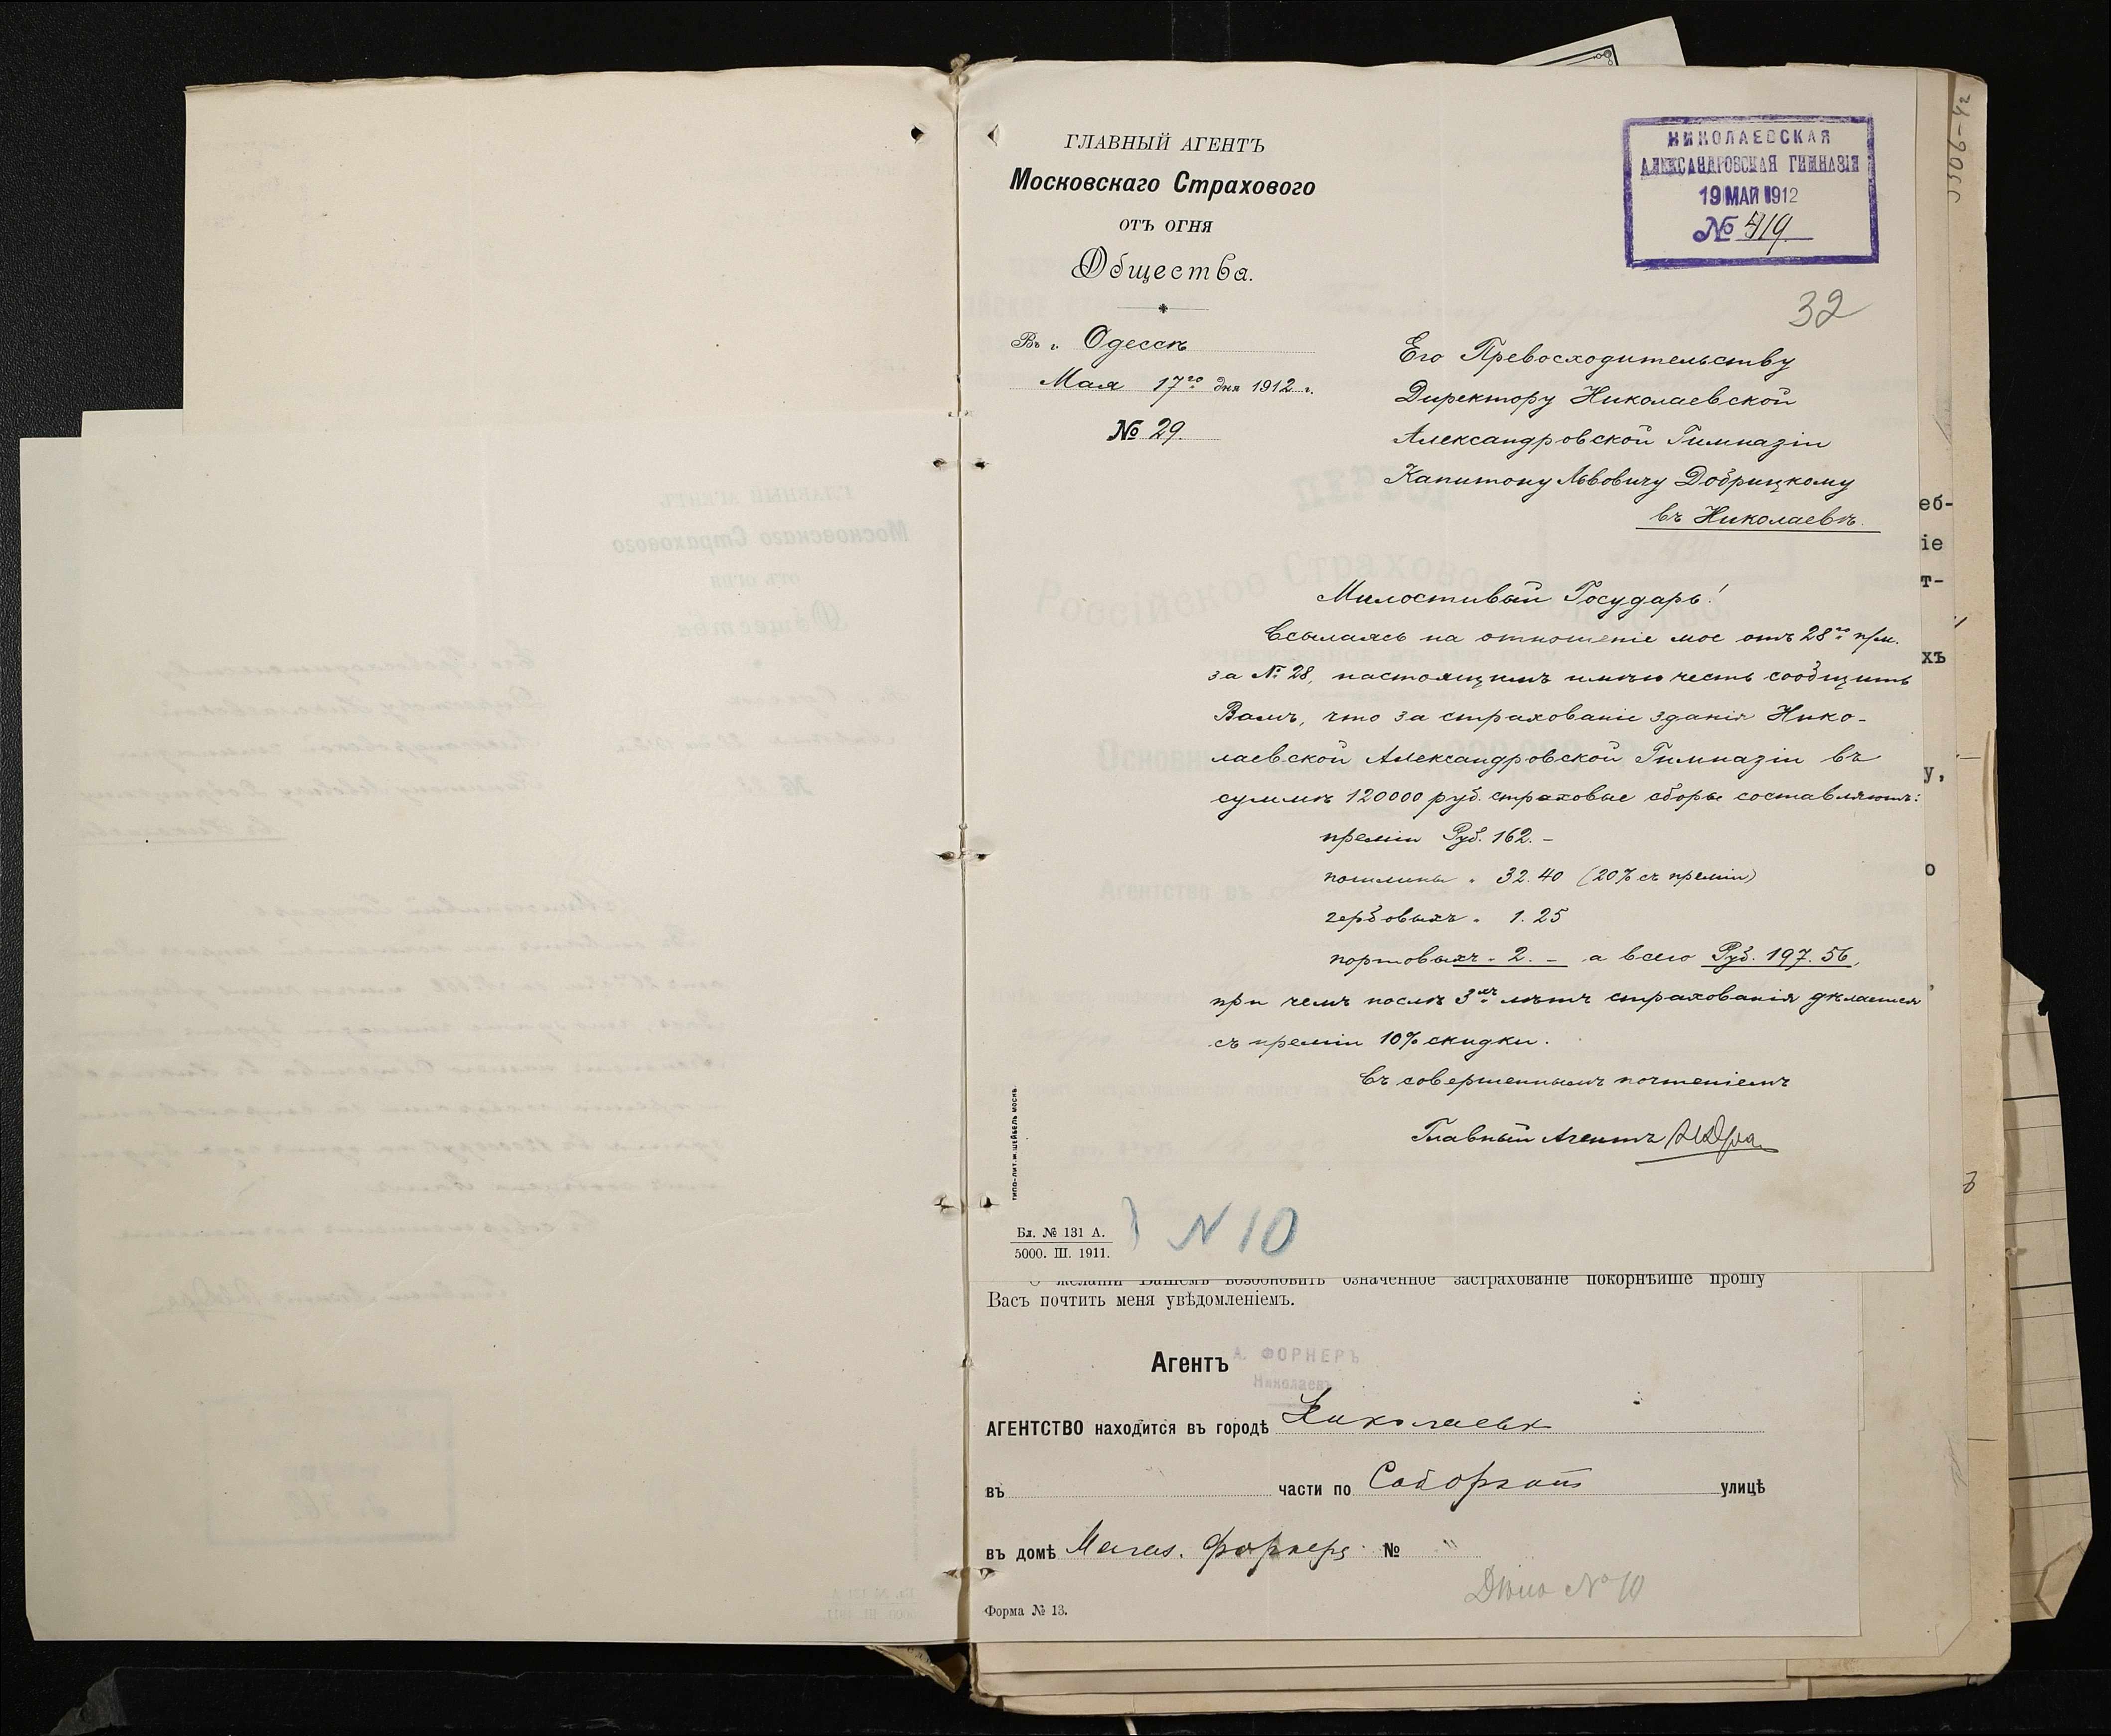 ГЛАВНЫЙ АГЕНТЪ
Московскаго Страхового
отъ огня
Общества.
Въ г. Одессѣ
Мая 17го дня 1912 г.
№ 29.
НИКОЛАЕВСКАЯ
АЛЕКСАНДРОВСКАЯ ГИМНАЗІЯ
19 МАЙ 1912
№ 519
32
3306-42
Его Превосходительству
Директору Николаевской
Александровской Гимназіи
Капитону Львовичу Добрицкому
въ Николаевѣ.
Милостивый Государь!
Ссылаясь на отношеніе мое отъ 28го п/м.
за № 28, настоящимъ имѣю честь сообщить
Вамъ, что за страхованіе зданія Нико-
лаевской Александровской Гимназіи въ
суммѣ 120000 руб. страховые сборы составляютъ:
преміи Руб. 162. –
пошлины " 32.40 (20% съ преміи)
гербовыхъ " 1.25
портовыхъ " 2. – а всего Руб. 197.56,
при чемъ послѣ 3хъ лѣтъ страхованія дѣлается
съ преміи 10% скидки.
Съ совершеннымъ почтеніемъ
Главный Агентъ
ТИПО-ЛИТ. М. ШЕЙБЕЛЬ МОСНВ.
Бл. № 131 А.
5000. III. 1911.
N 10
еб-
іе
т-
хъ
у,
о
О желаніи Вашемъ возобновить означенное застрахованіе покорнѣйше прошу
Васъ почтить меня увѣдомленіемъ.
Агентъ А. ФОРНЕРЪ
Николаевъ
АГЕНТСТВО находится въ городѣ Николаевѣ
въ части по Соборной улицѣ
въ домѣ Магаз. Форнера № "
Дѣло № 10
Форма № 13.